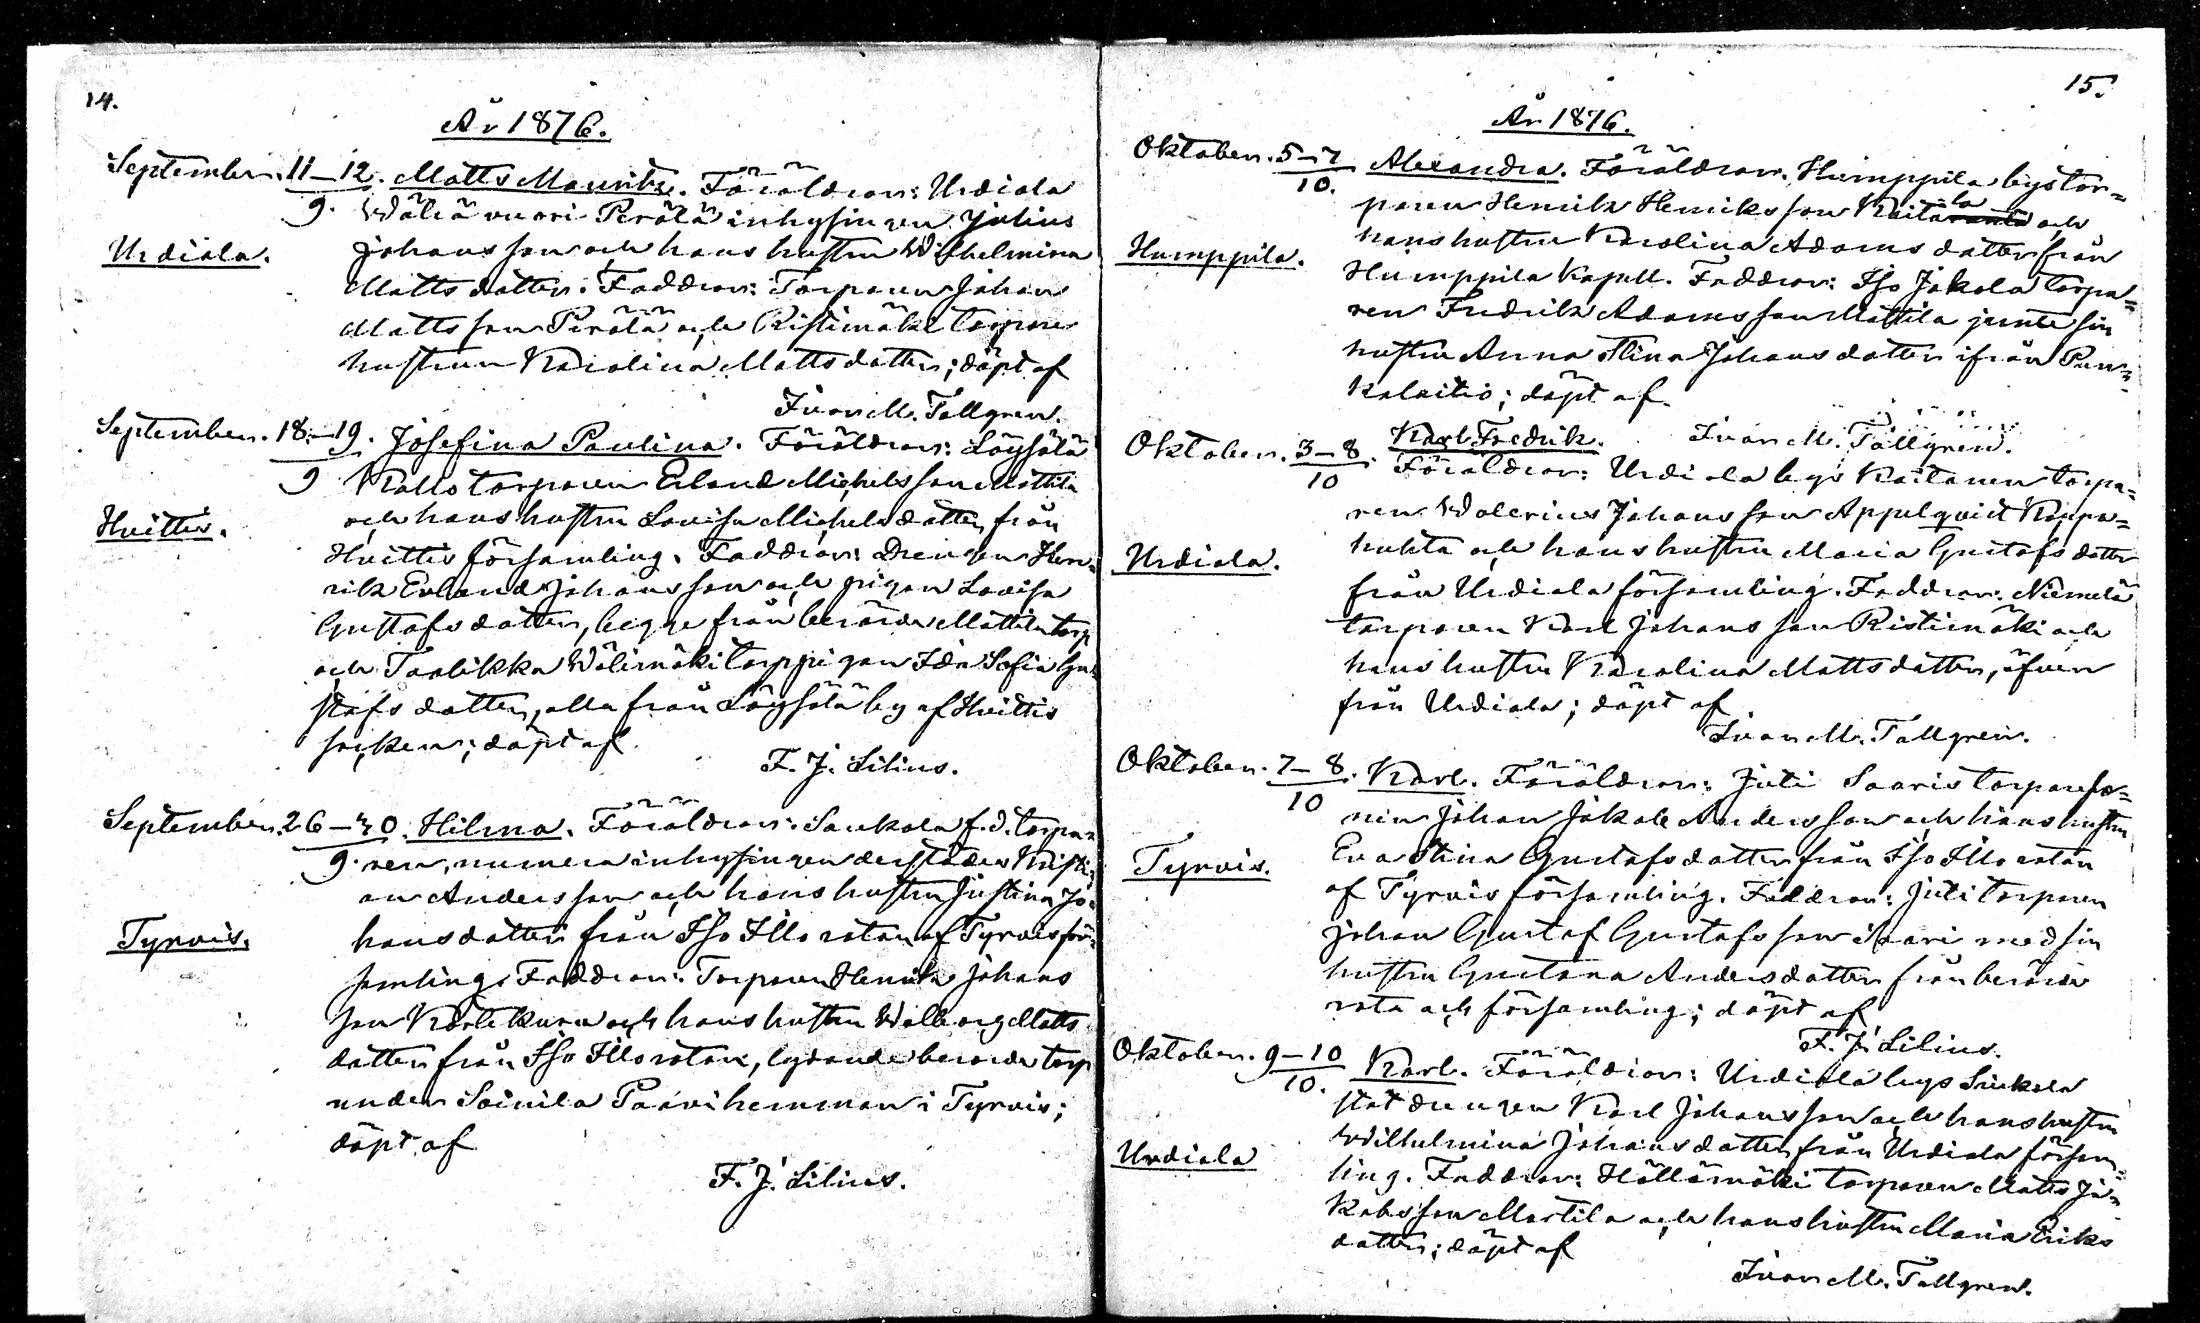 14.
År 1876.
September. 11–12. Matts Mauritz. Föräldrar: Urdiala
9. Wäliävuori Perälä inhysingen Julius
Urdiala. Johansson och hans hustru Wilhelmina
Mattsdotter. Faddrar: Torparen Johan
Mattsson Perälä och Ristimäki torpare
hustrun Karolina Mattsdotter; döpt af
Ivar M. Tallgren.
September. 18–19. Josefina Paulina. Föräldrar: Löysälä
9 Kallo torparen Erland Michelsson Mattila
Huittis. och hans hustru Lovisa Michelsdotter från
Huittis församling. Faddrar: Drengen Hen=
rik Erland Johansson och pigan Lovisa
Gustafsdotter, begge från berörde Mattila torp
och Taalikka Wälimäki torppigan Ida Sofia Gu=
stafsdotter, alla från Löysälä by af Huittis
socken; döpt af
F. J. Lilius.
September. 26–30. Hilma. Föräldrar: Saukola f.d. torpa=
9. ren, numera inhysingen derstädes Kristi=
an Andersson och hans hustru Justina Jo=
Tyrvis. hansdotter från Iso Illo rotan af Tyrvis för=
samling. Faddrar: Torparen Henrik Johans
son Kortekuru och hans hustru Walborg Matts
dotter från Iso Illo rotan, lydande berörde torp
under Soinila Paavi hemman i Tyrvis;
döpt af
F. J. Lilius.
15.
År 1876.
Oktober. 5–7 Alexandra. Föräldrar: Humppila bys tor=
10. paren Henrik Henriksson Raitala och
Humppila. hans hustru Karolina Adamsdotter från
Humppila Kapell. Faddrar: Iso Jakola torpa=
ren Fredrik Adamsson Mattila jemte sin
hustru Anna Stina Johansdotter ifrån Pun=
kalaitio; döpt af
Ivar M. Tallgren.
Oktober. 3–8. Karl Fredrik.
10 Föräldrar: Urdiala bys Raitanen torpa=
ren Walerius Johansson Appelqvist Koppa=
Urdiala. huhta och hans hustru Maria Gustafsdotter
från Urdiala församling. Faddrar: Niemelä
torparen Karl Johansson Ristimäki och
hans hustru Karolina Mattsdotter, äfven
från Urdiala; döpt af
Ivar M. Tallgren.
Oktober. 7–8. Karl. Föräldrar: Juti Saaris torpareso=
10 nen Johan Jakob Andersson och hans hustru
Tyrvis. Eva Stina Gustafsdotter från Iso Illo rotan
af Tyrvis församling. Faddrar: Juti torparen
Johan Gustaf Gustafsson Saari med sin
hustru Gustava Andersdotter från berörde
rota och församling; döpt af
F. J. Lilius.
Oktober. 9–10 Karl. Föräldrar: Urdiala bys Suckela
10. statdrengen Karl Johansson och hans hustru
Wilhelmina Johansdotter från Urdiala försam=
Urdiala ling. Faddrar: Hällämäki torparen Matts Ja=
kobsson Martila och hans hustru Maria Eriks
dotter; döpt af
Ivar M. Tallgren.